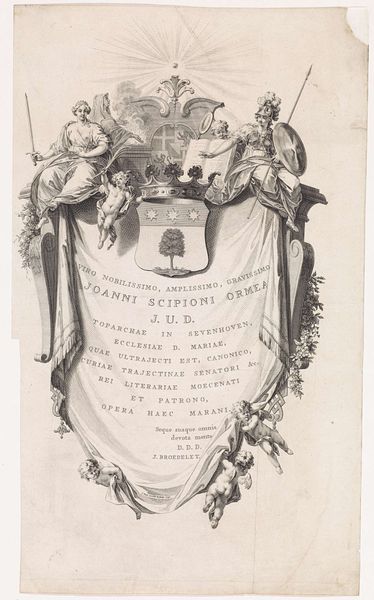 VIRO NOBILISSIMO, AMPLISSIMO, GRAVISSIMO
JOANNI SCIPIONI ORMEA
J. U. D.
TOPARCHAE IN SEVENHOVEN,
ECCLESIAE D. MARIAE,
QUAE ULTRAJECTI EST, CANONICO,
CURIAE TRAJECTINAE SENATORI &c.
REI LITERARIAE MOECENATI
ET PATRONO,
OPERA HAEC MARANI,
Seque suaque omnia
devota mente
D. D. D.
J. BROEDELET.